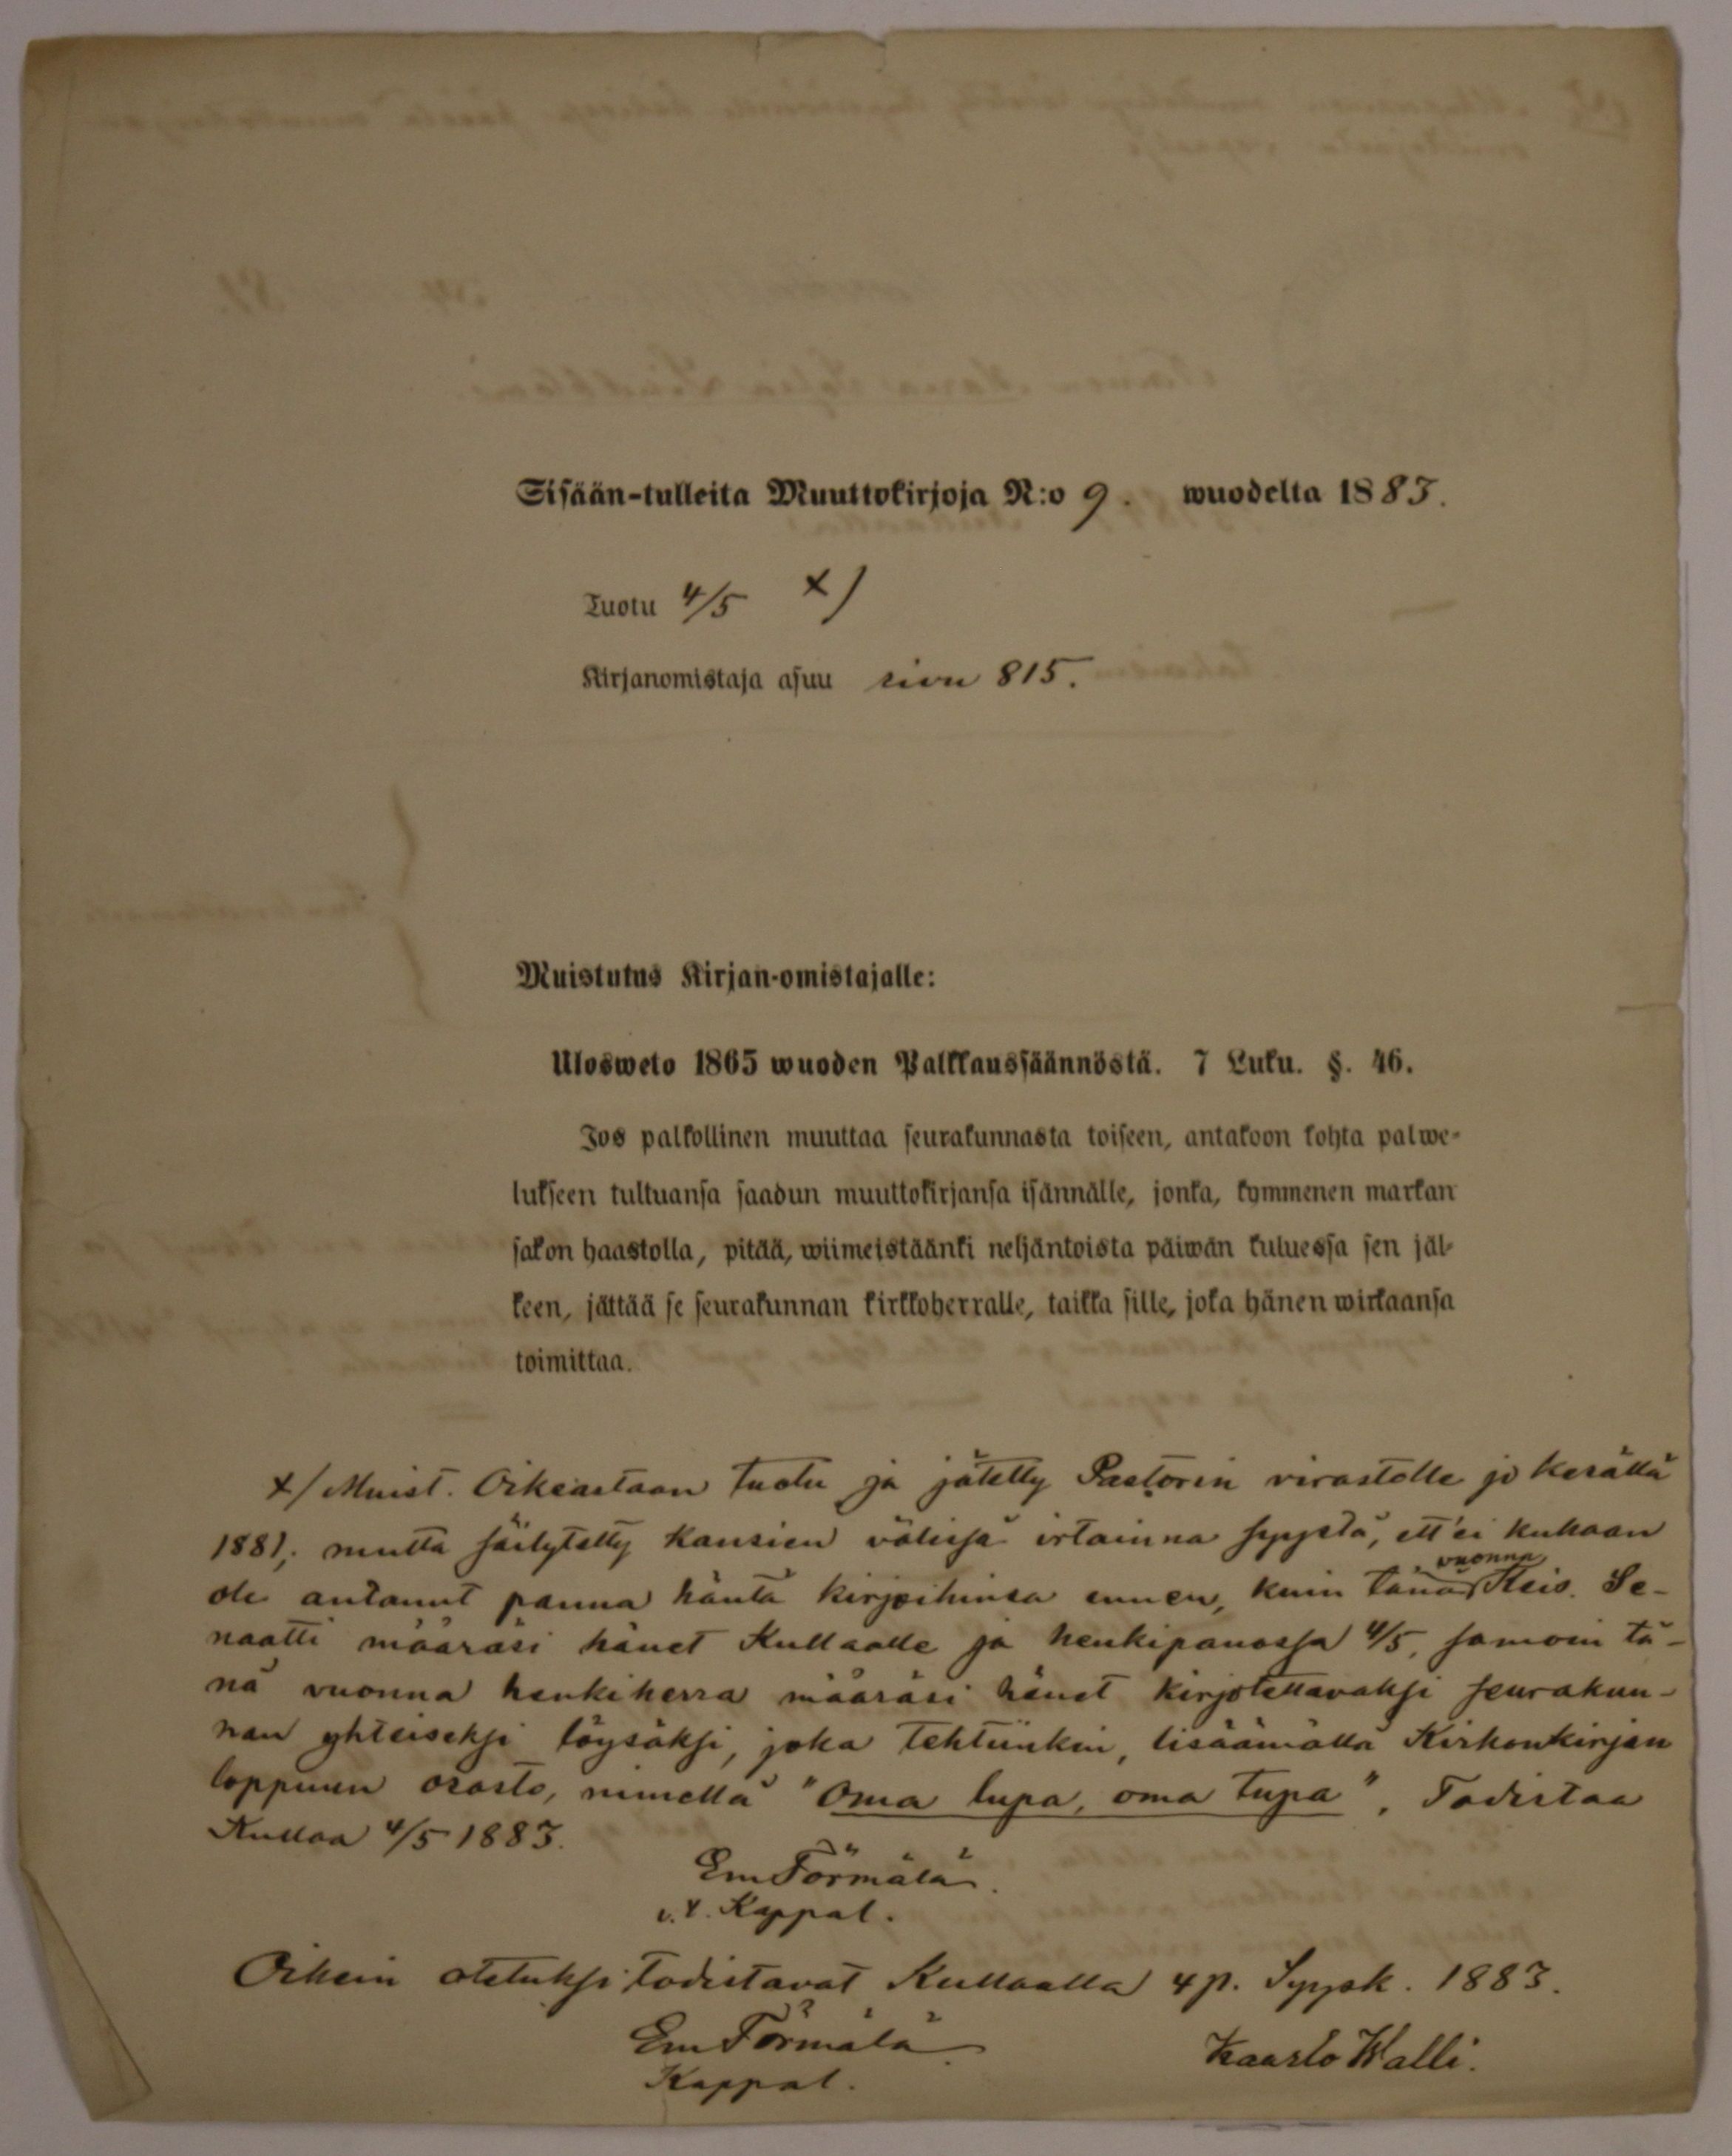 Sisään-tulleita Muuttokirjoja N:o 9. wuodelta 1883.
Tuotu 4/5 x)
Kirjanomistaja asuu sivu 815.
Muistutus Kirjan-omistajalle:
Ulosweto 1865 wuoden Palkkaussäännöstä. 7 Luku. §. 46.
Jos palkollinen muuttaa seurakunnasta toiseen, antakoon kohta palwe-
lukseen tultuansa saadun muuttokirjansa isännälle, jonka, kymmenen markan
sakon haastolla, pitää, wiimeistäänki neljäntoista päiwän kuluessa sen jäl-
keen, jättää se seurakunnan kirkkoherralle, taikka sille, joka hänen wirkaansa
toimittaa.
x/ Muist. Oikeastaan tuotu ja jätetty Pastorin virastolle jo kesällä
1881; mutta säilytetty kansien välissä irtainna syystä, ett'ei kukaan
ole antanut panna häntä kirjoihinsa ennen, kuin tänä vuonna Keis. Se-
naatti määräsi hänet Kullaalle ja henkipanossa 4/5, samoin tä-
nä vuonna henkiherra määräsi hänet kirjotettavaksi seurakun-
nan yhteiseksi löysäksi, joka tehtiinkin, lisäämällä Kirkonkirjan
loppuun osasto, nimellä "Oma lupa, oma tupa". Todistaa
Kullaa 4/5 1883.
Em Törmälä.
v.t. Kappal.
Oikein otetuksi todistavat Kullaalla 4 p. Syysk. 1883.
Em Törmälä
Kappal.
Kaarlo Walli.